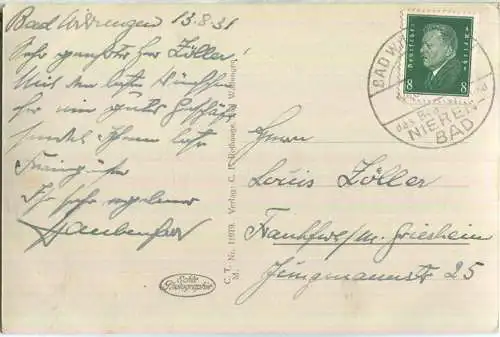 Bad Wildungen 13.8.31
Sehr geehrter Herr Zöller!
Mit den besten Wünschen
für ein gutes Geschäft
sendet Ihnen beste
Ihr sehr ergebener
C. T. Nr. 11979. Verlag: C. Bad Wildungen.
M.
Echte
Photographie
Deutsches Reich
8 8
BAD WIL
NIEREN-
BAD
Herrn
Louis Zöller
Frankfurt/M. Griesheim
Jungmannstr 25